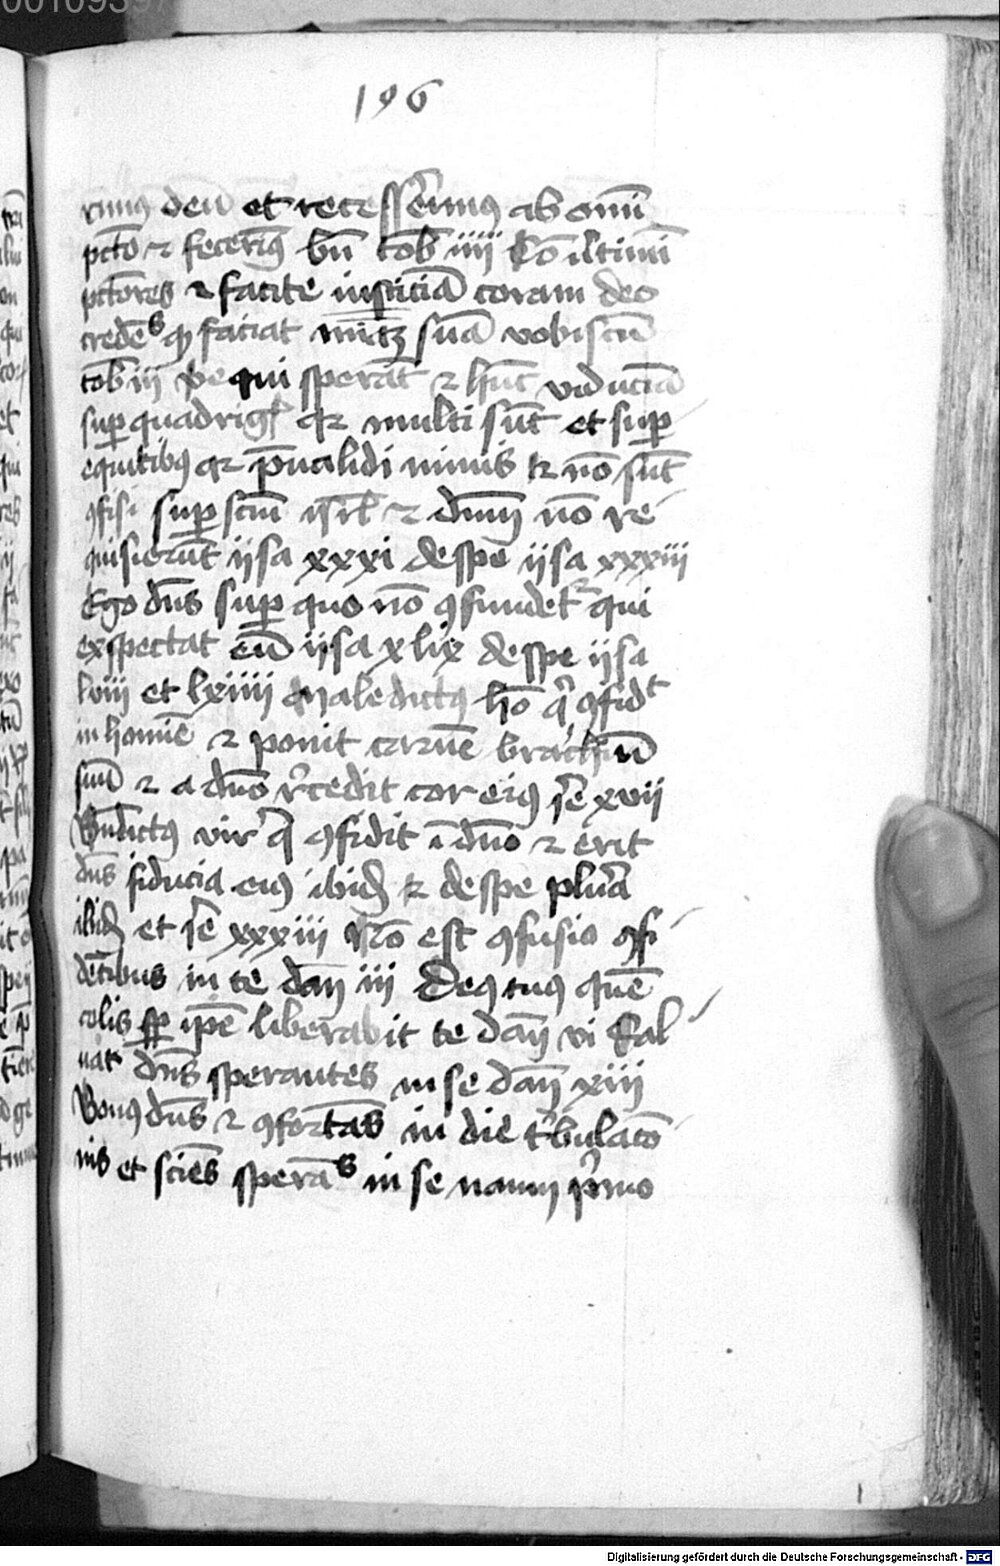 00109397
196
rimus deū et recesserimus ab omī
pctō ⁊ fecerimꝰ bn̄ tob iiii Cōūtimī
pctōres ⁊ facite iusticiā coram deo
credētes ꝙ faciat mīaꝫ suā vobiscū
tob iii Ve qui sperāt ⁊ hn̄t fiduciā
suꝑ quadrigis qꝛ multi sūt et suꝑ
equitibꝰ qꝛ p̄ualidi nimis ⁊ nō sūt
ꝯfisi suꝑ scm̄ isrl̄ ⁊ dnm̄ nō re
quisierūt ysa xxxi de spe ysa xxxiii
Ego dn̄s suꝑ quo nō ꝯfundet᷑ qui
exspectat eū ysa xlix de spe ysa
lviii et lxiiii Maledictꝰ hō qi ꝯfidt
in homīe ⁊ ponit carnē brachiū
suū ⁊ a dn̄o rͥcedit cor eiꝰ Ire xvii
Bn̄dictꝰ vir qi ꝯfidit ī dn̄o ⁊ erit
dn̄s fiducia eiꝰ ibid ⁊ de spe plura
ibid et Ire xxxiii Nō est ꝯfusio ꝯfi
dētibus in te dan̄ iii Deꝰ tuꝰ quē
colis sꝑ ip̄e liberabit te dan̄ vi Sal
uat dn̄s sperantes in se dan̄ xiii
Bonꝰ dn̄s ⁊ ꝯfortās in die tͥbulacō
nis et sciēs sperātes in se naum pͥmo
Digitalisierung gefördert durch die Deutsche Forschungsgemeinschaft - DFG